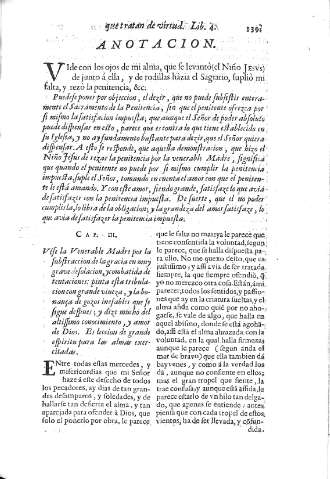 que tratan de virtud. Lib. 4.
ANOTACION.
VIde con los ojos de mi alma, que se levantó (el Niño Jesus)
de junto á ella, y de rodillas házia el Sagrario, suplió mi
falta, y rezó la penitencia, &c.
Puedese poner por objeccion, el dezir, que no puede subsistir entera-
mente el Sacramento de la Penitencia, sin que el penitente ofrezca por
si mismo la satisfacion impuesta; que aunque el Señor de poder absoluto
puede dispensar en esto, parece que es contra lo que tiene establecido en
su Iglesia, y no ay fundamento bastante para dezir, que el Señor quiera
dispensar. A esto se responde, que aquesta demonstracion, que hizo el
Niño Jesus de rezar la penitencia por la venerable Madre, significa
que quando el penitente no puede por si mismo cumplir la penitencia
impuesta, suple el Señor, tomando en cuenta el amor con que el peniten-
te le está amando. Y con este amor, siendo grande, satisface lo que avia
de satisfacer con la penitencia impuesta. De suerte, que el no poder
cumplirla, le libra de la obligacion; y la grandeza del amor satisface, lo
que avia de satisfacer la penitencia impuesta.
CAP. III.
Vese la Venerable Madre por la
substraccion de la gracia en muy
grave desolacion, y combatida de
tentaciones: pinta esta tribula-
cion con grande viveza, y la bo-
nança de gozos inefables que se
sigue despues; y dize mucho del
altissimo conocimiento, y amor
de Dios. Es leccion de grande
espiritu para las almas exer-
citadas.
ENtre todas estas mercedes, y
misericordias que mi Señor
haze á este desecho de todos
los pecadores, ay dias de tan gran-
des desamparos, y soledades, y de
hallarse tan desierta el alma, y tan
aparejada para ofender á Dios, que
solo el ponerlo por obra, le parece
que le falta no mas; y le parece que
tiene consentida la voluntad, segun
le parece, que se halla dispuesta pa-
ra ello. No me quexo de ito, que es
justissimo; y assi avia de ser tratada
siempre, la que siempre ofendió, q̃
yo no merezco otra cosa. Están, á mi
parecer, todos los sentidos, y passio-
nes que ay en la criatura sueltas; y el
alma atada como quié por no aho-
garse, se vale de algo, que halla en
aquel abismo, donde se está agotã-
do, assi está el alma abrazada con la
voluntad, en la qual halla firmeza
aunque le parece (segun anda el
mar de bravo) que ella tambien dá
bayvenes, y como á la verdad los
dá, aunque no consiente en ellos;
mas el gran tropel que siente, la
trae confusa; y aunque está assida, le
parece estarlo de vn hilo tan delga-
do, que apenas se entiende; antes
piensa que con cada tropel de estos
vientos, ha de ser llevada, y cõfun-
dida.